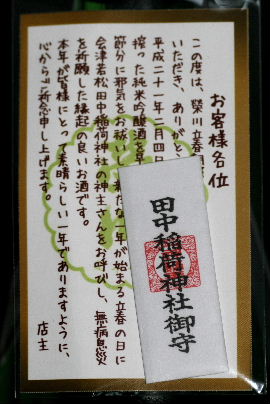 お客様各位
この度は、榮川立春
いただき、ありがと
平成二十一年二月四日
搾った純米吟醸酒を
節分に邪気をお祓いし
たな一年が始まる立春の日に
会津若松田中稲荷神社の神主さんをお呼びし、無病息災
を祈願した縁起の良いお酒です。
本年が皆様にとって素晴らしい一年でありますように、
心からご祈念申し上げます。
店主
田中稲荷神社御守